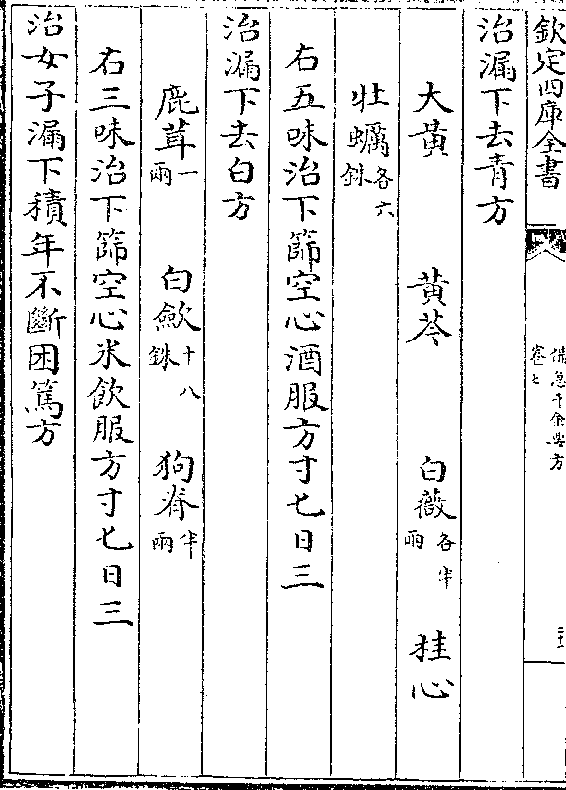 欽定四庫全書
備急千金要方
卷七
治漏下去青方
大黄　黄芩　白薇各半兩　桂心
牡蠣各六銖
右五味治下篩空心酒服方寸匕日三
治漏下去白方
鹿茸一兩　白歛十八銖　狗脊半兩
右三味治下篩空心米飲服方寸匕日三
治女子漏下積年不斷困篤方